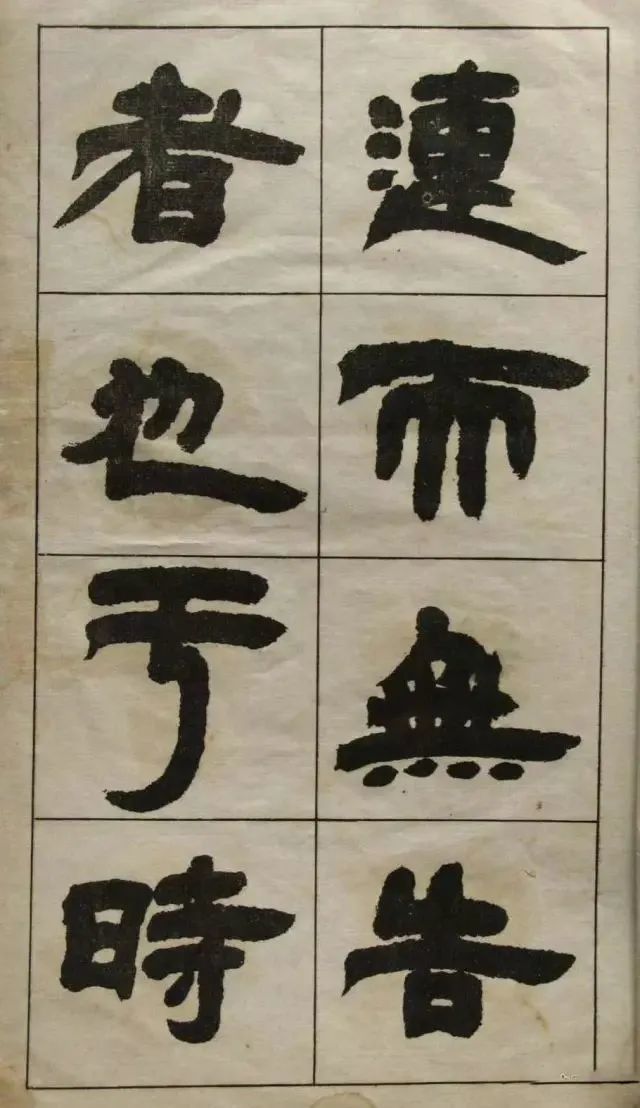 連而無告
者也于時